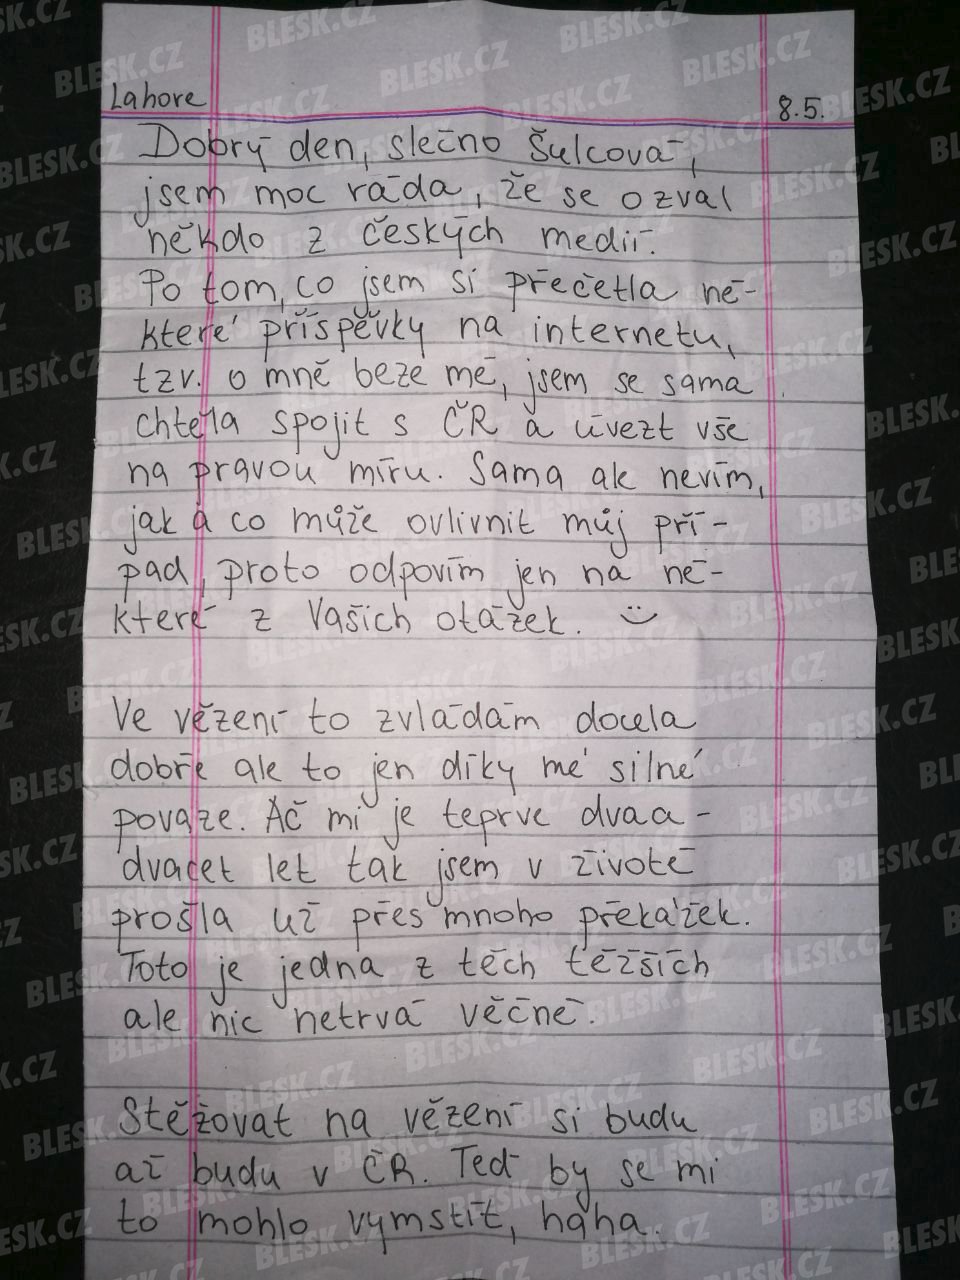 Lahore
8.5.
Dobrý den, slečno Šulcová,
jsem moc ráda, že se ozval
někdo z českých medií.
Po tom, co jsem si přečetla ně-
které příspěvky na internetu,
tzv. o mně beze mě, jsem se sama
chtěla spojit s ČR a uvézt vše
na pravou míru. Sama ale nevím,
jak a co může ovlivnit můj pří-
pad, proto odpovím jen na ně-
které z Vašich otázek. :)
Ve vězení to zvládám docela
dobře ale to jen díky mé silné
povaze. Ač mi je teprve dvaa-
dvacet let tak jsem v životě
prošla už přes mnoho překážek.
Toto je jedna z těch těžších
ale nic netrvá věčně.
Stěžovat na vězení si budu
až budu v ČR. Teď by se mi
to mohlo vymstít, haha.
BLESK.CZ